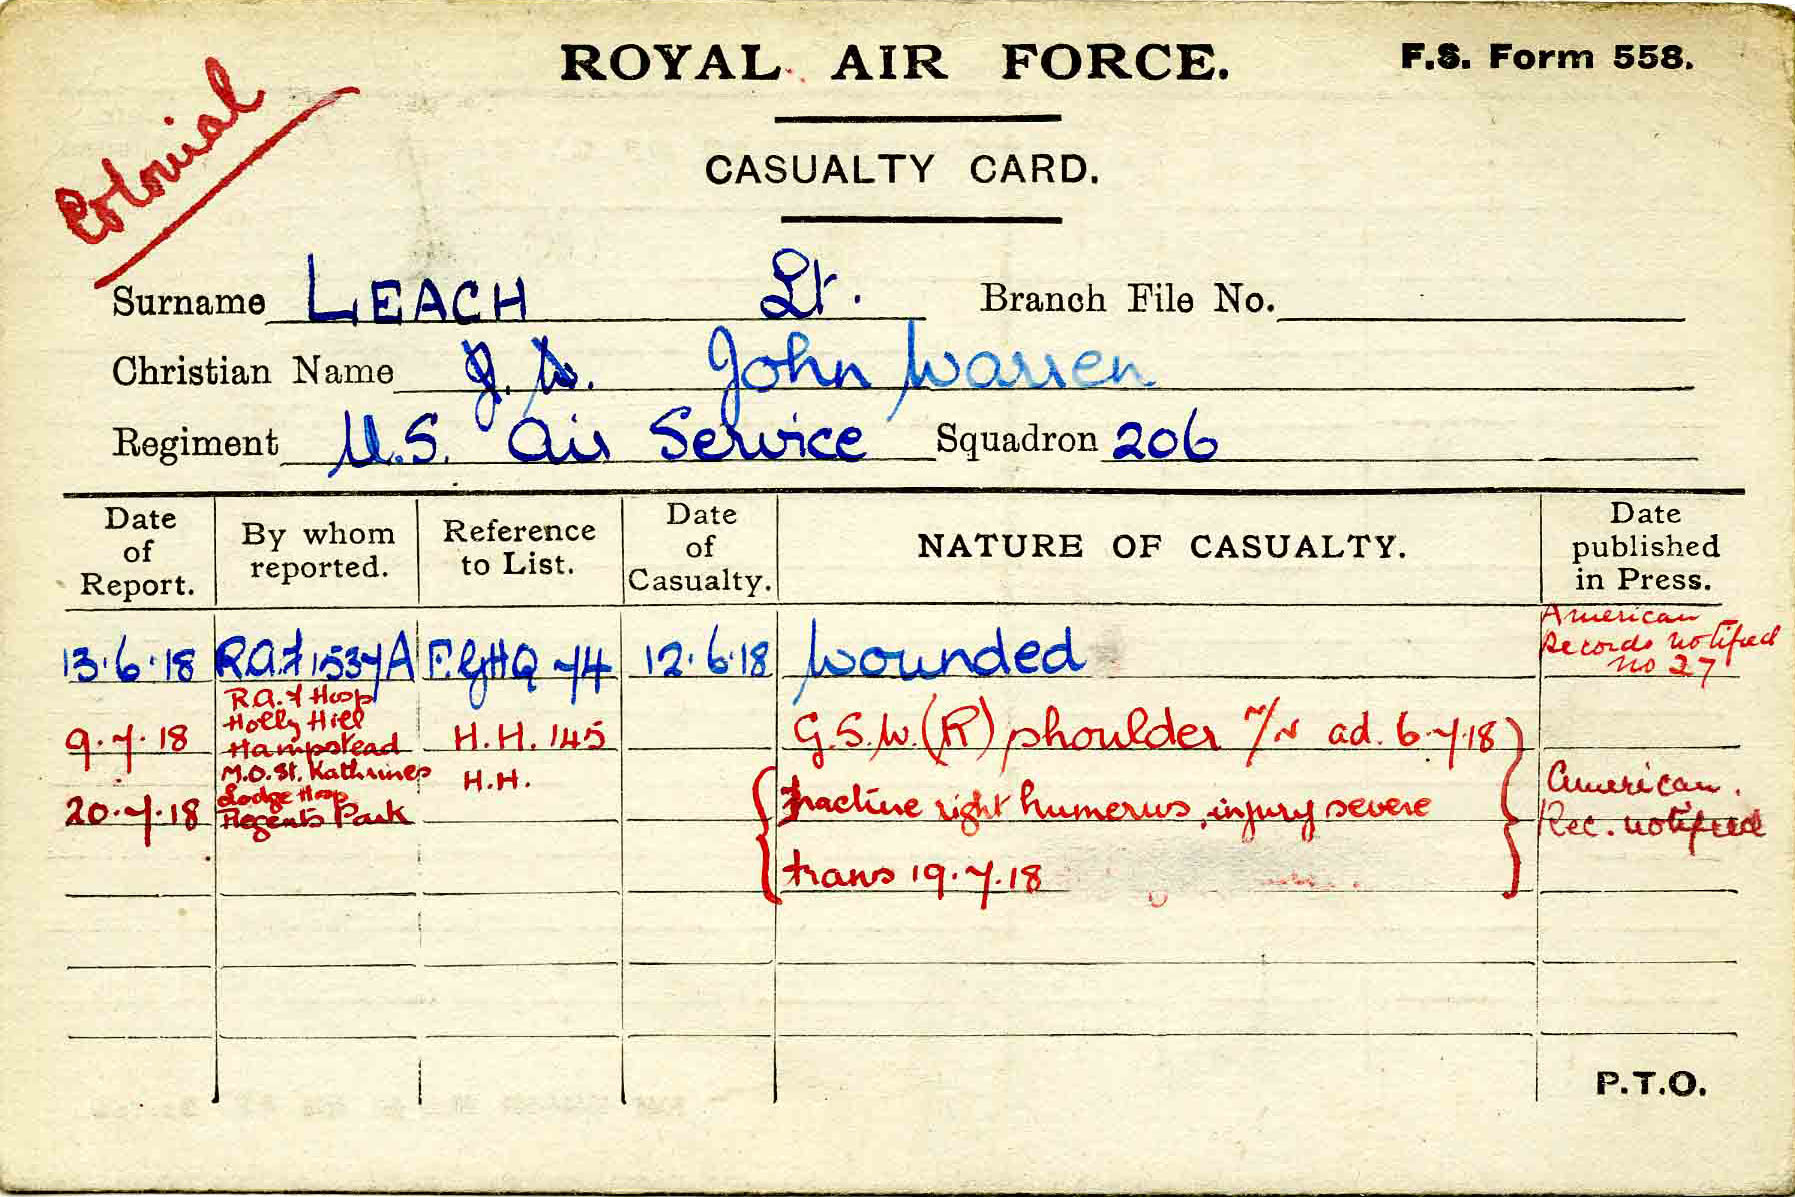 ROYAL AIR FORCE. F.S. Form 558.
Colonial
CASUALTY CARD.
Surname LEACH Lt. Branch File No.
Christian Name J. W. John Warren
Regiment U.S. Air Service Squadron 206
Date of Report. By whom reported. Reference to List. Date of Casualty. NATURE OF CASUALTY. Date published in Press.
13.6.18 R.A.F 1537A F.GHQ 74 12.6.18 Wounded American Records notified No 27
9.7.18 R.A.F Hosp Holly Hill Hampstead H.H. 145 G.S.W. (R) shoulder ad. 6.7.18
20.7.18 M.O. St. Kathrines Lodge Hosp Regents Park H.H. Fracture right humerus, injury severe American. Rec. notified
trans 19.7.18
P.T.O.